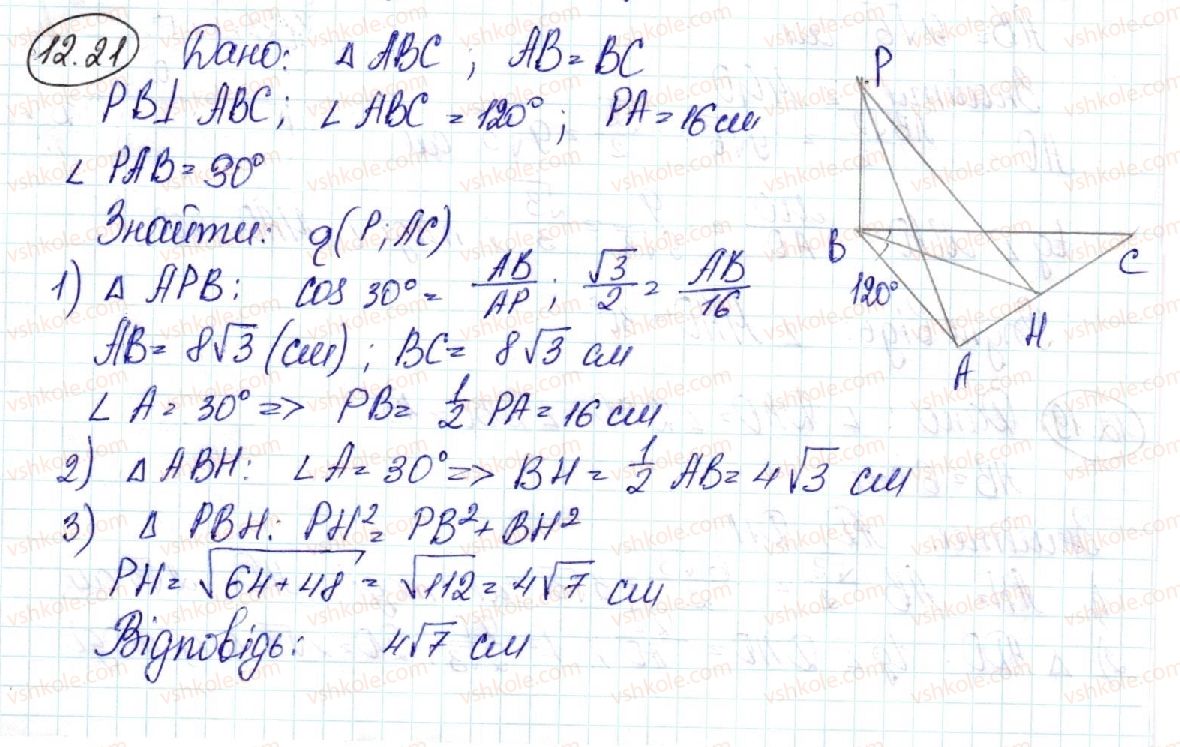 12.21 Дано: △ ABC ; AB = BC
PB⊥ ABC; ∠ ABC = 120°; PA = 16 см
∠ PAB = 30°
Знайти: q(P; AC)
1) △ APB: cos 30° = AB/AP; √3/2 = AB/16
AB = 8√3 (см); BC = 8√3 см
∠ A = 30° => PB = 1/2 PA = 16 см
2) △ ABH: ∠A = 30° => BH = 1/2 AB = 4√3 см
3) △ PBH: PH² = PB² + BH²
PH = √64+48 = √112 = 4√7 см
Відповідь: 4√7 см
P
B
C
120°
H
A
vshkole.com